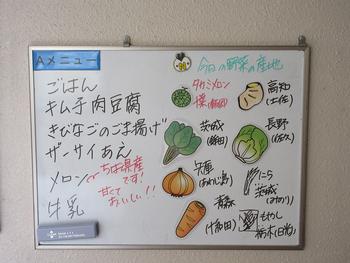 Aメニュー
ごはん
キムチ肉豆腐
きびなごのごま揚げ
ザーサイあえ
メロン
ちば県産
です!
甘くて
おいしい!!
牛乳
今日の野菜の産地
タカミメロン
高知
(土佐)
茨城
長野
(佐久)
兵庫
(あわじ島)
にら
茨城
青森
(十和田)
もやし
栃木(日光)